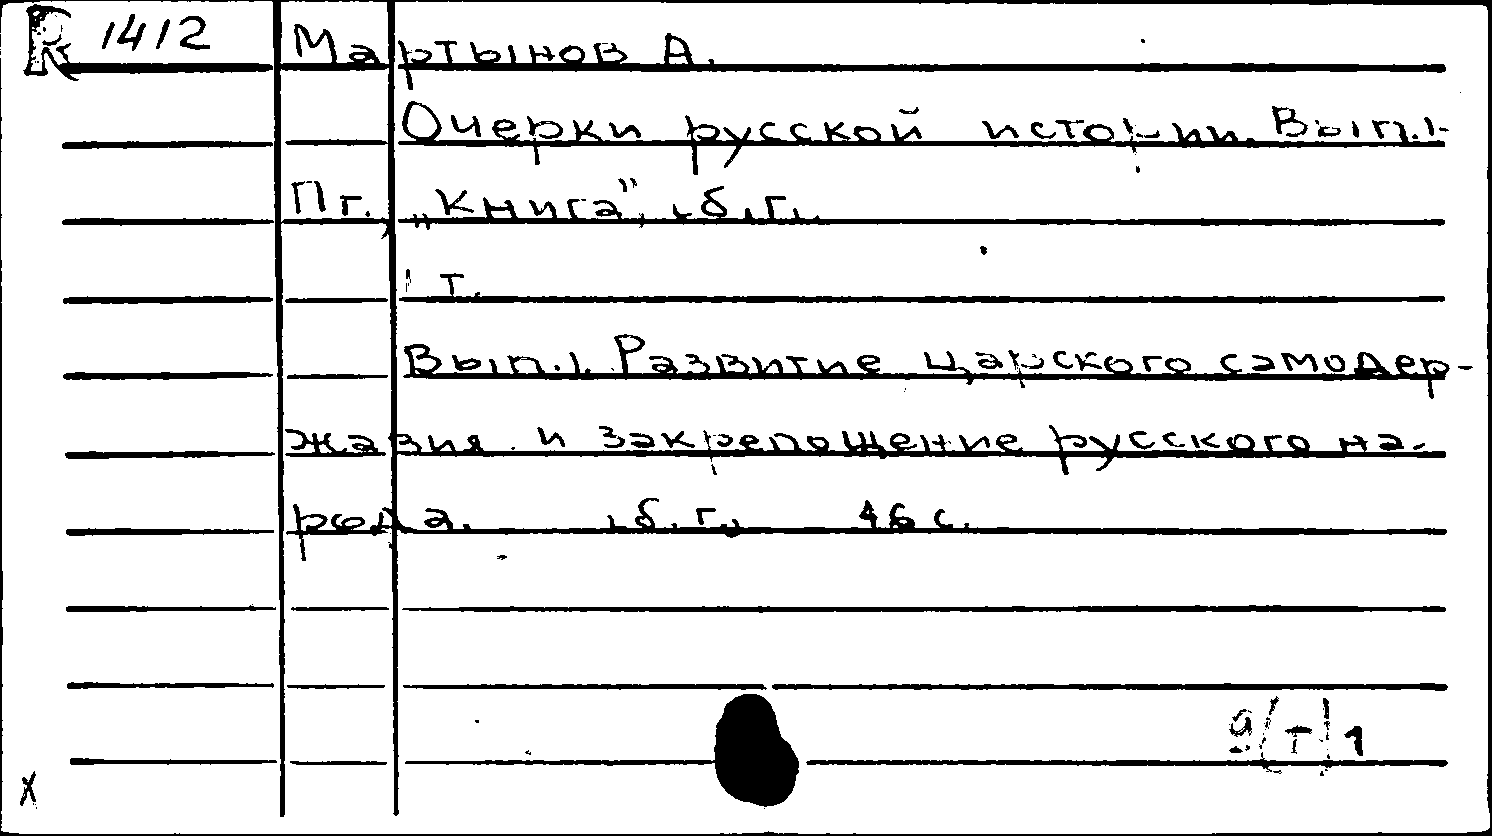 R 1412
Мартынов А.
Очерки русской истории. Вып.1-
Пг., „Книга", б.г.
1 т.
Вып.1. Развитие царского самодер-
жавия и закрепощение русского на-
рода. б.г., 46 с.
9(т)1
X